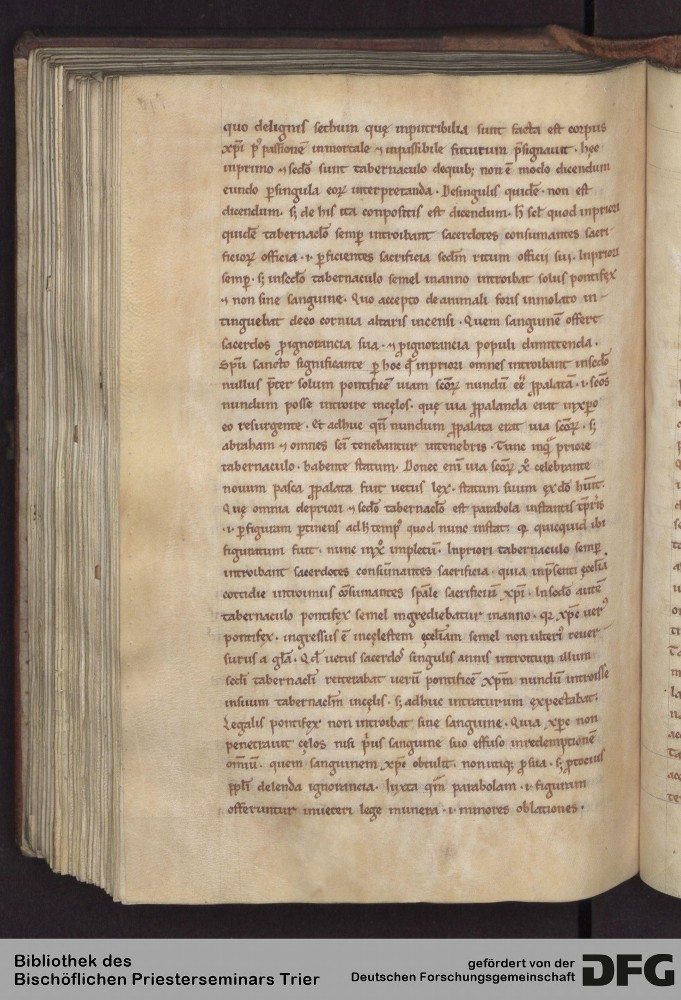 quo de lignis sethim quę inputribilia sunt facta est corpus
xp̄i p' passionē inmortale ⁊ inpassibile futurum p̄signauit. hęc
inprimo ⁊ scd̄o sunt tabernaculo de quib; non ē modo dicendum
eundo p singula eoꝝ interpretanda. De singulis quidē. non est
dicendum. s; de his ita conpositis est dicendum. quod inpriori
quidē tabernacl̄o semp̄ introibant sacerdotes consumantes sacri
ficioꝝ officia. ı. ꝑficientes sacrificia scd̄m ritum officii sui. Inpriori
semp̄. s; inscd̄o tabernaculo semel in anno introibat solus pontifęx
⁊ non sine sanguine. Quo accepto de animali foris inmolato in-
tinguebat de eo cornua altaris incensi. Quem sanguinē offert
sacerdos ꝓ ignorancia sua. ⁊ ꝓ ignorancia populi dimittenda.
Sp̄u sancto significante ꝑ hoc qd̄ inpriori omnes introibant inscd̄o
nullus p̄ter solum pontificē uiam sc̄oꝝ nundū eē ꝓpalatā. ı. sc̄os
nundum posse introire incęlos. quę uia ꝓpalanda erat inxp̄o
eo resurgente. Et adhuc qn̄ nundum ꝓpalata erat uia sc̄oꝝ. s;
abraham ⁊ omnes sc̄i tenebantur intenebris. Tunc inquā priore
tabernaculo. habente statum. Donec enī uia sc̄oꝝ xp̄o celebrante
nouum pasca ꝓpalata fuit uetus lęx. statum suum ex dō hūit.
Quę omnia de priori ⁊ scd̄o tabernacl̄o est parabola instantis tp̄ris
.ı. ꝑ figuram ꝑtinens ad h̄ tempus quod nunc instat. quicquid ibi
figuratum fuit. nunc in xp̄o impletū. Inpriori tabernaculo semp̄
introibant sacerdotes consūmantes sacrificia. quia inp̄senti ęcclīa
cottidie introimus cōsumantes sp̄ale sacrificiū xp̄i. In scd̄o autē
tabernaculo pontifęx semel ingrediebatur in anno. xp̄c uer'
pontifęx. ingressus ē incęlestem ęcclīam semel non ulteri' reuer
surus a gl̄a. uetus sacerdos singulis annis introitum illum
scd̄i tabernacl̄i reiterabat uerū pontificē xp̄m nundū introisse
insuum tabernacl̄m incęlis. s; adhuc intraturum ęxpectabat.
Legalis pontifęx non introibat sine sanguine. Quia xp̄c non
penetrauit cęlos nisi p̄us sanguine suo effuso inredemptionē
om̄iū. quem sanguinem xp̄c obtulit. non utiq; ꝓ sua. s; ꝓ tocius
ppl̄i delenda ignorancia. Iuxta qm̄ parabolam. ı. figuram
offeruntur in ueteri lege munera. ı. minores oblationes.
Bibliothek des
Bischöflichen Priesterseminars Trier
gefördert von der
Deutschen Forschungsgemeinschaft
DFG